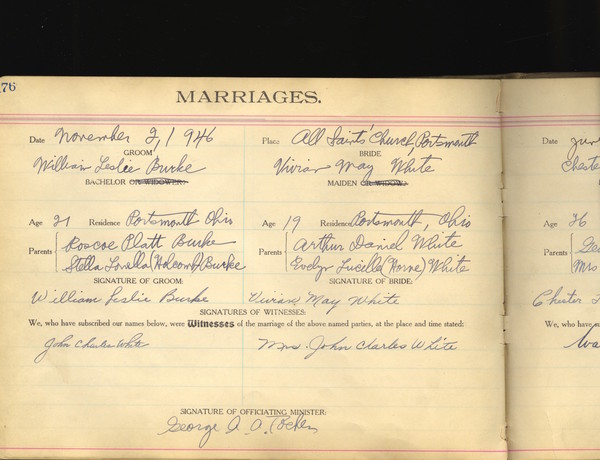 76
MARRIAGES.
Date November 2, 1946 Place All Saints' Church, Portsmouth
GROOM BRIDE
William Leslie Burke Vivian May White
BACHELOR OR WIDOWER: MAIDEN OR WIDOW:
Age 21 Residence Portsmouth Ohio Age 19 Residence Portsmouth, Ohio
Parents Roscoe Platt Burke Parents Arthur Daniel White
Stella Louella (Holcomb) Burke Evelyn Lucille (Horne) White
SIGNATURE OF GROOM: SIGNATURE OF BRIDE:
William Leslie Burke Vivian May White
SIGNATURES OF WITNESSES:
We, who have subscribed our names below, were Witnesses of the marriage of the above named parties, at the place and time stated:
John Charles White Mrs. John Charles White
SIGNATURE OF OFFICIATING MINISTER:
George
Date
Age 36
Parents
Mrs
We, who have